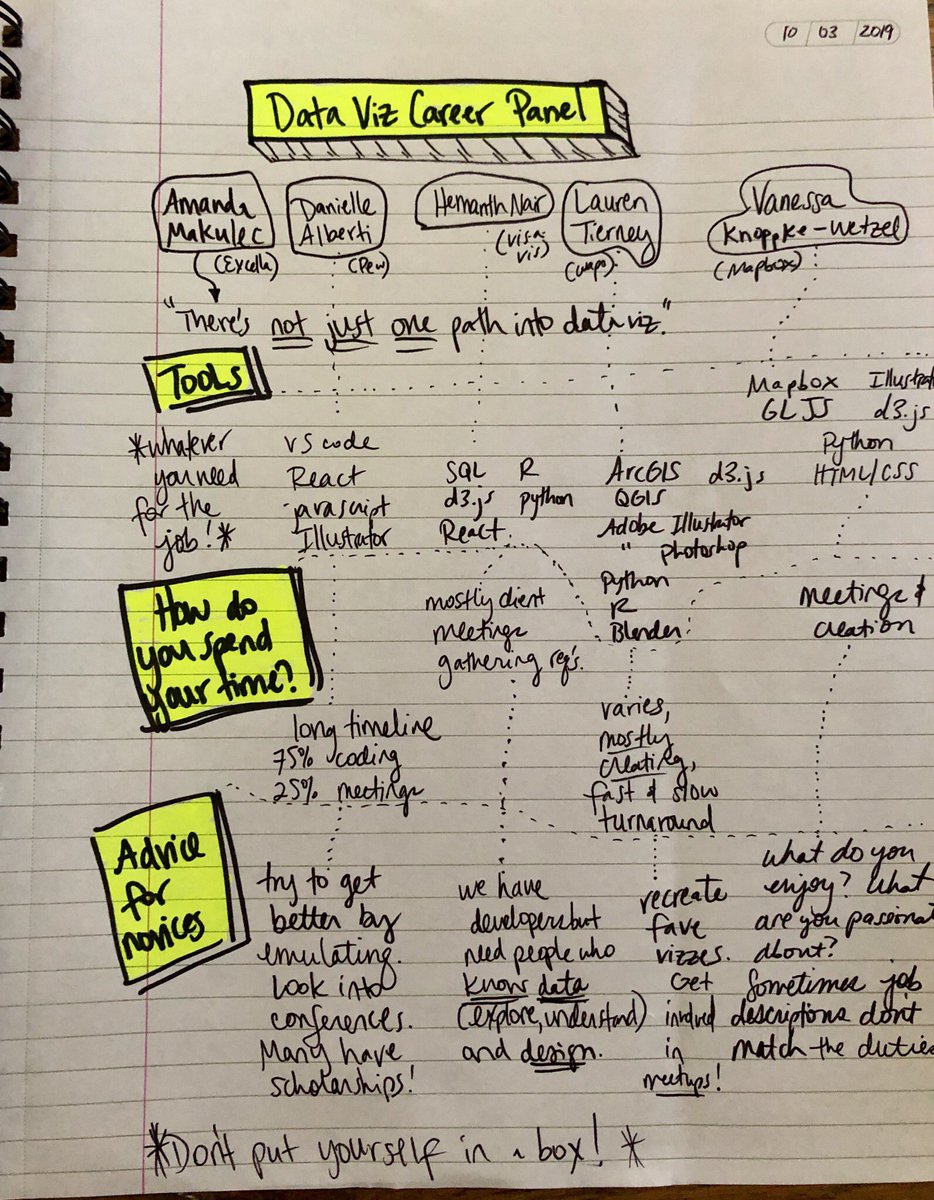 10 03 2019
Data Viz Career Panel
Amanda
Makulec
(Excella)
Danielle
Alberti
(Pew)
Hemanth Nair
(visa
vis)
Lauren
Tierney
(wapo)
Vanessa
Knoppke-Wetzel
(Mapbox)
"There's not just one path into data viz."
TOOLS
*whatever
you need
for the
job!*
VS code
React
javascript
Illustrator
SQL R
d3.js python
React
ArcGIS d3.js
QGIS
Adobe Illustrator
" photoshop
Python
R
Blender
Mapbox Illustrat
GL JS d3.js
Python
HTML/CSS
How do
you spend
your time?
long timeline
75% coding
25% meetings
mostly client
meetings
gathering req's.
varies,
mostly
creating,
fast & slow
turnaround
meetings &
creation
Advice
for
novices
try to get
better by
emulating.
Look into
conferences.
Many have
scholarships!
we have
developers but
need people who
know data
(explore, understand)
and design.
recreate
fave
vizzes.
Get
involved
in
meetups!
what do you
enjoy? What
are you passionat
about?
Sometimes job
descriptions don't
match the duties
*Don't put yourself in a box! *